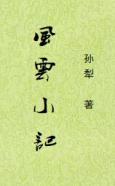 風雲小記
孙犁 著